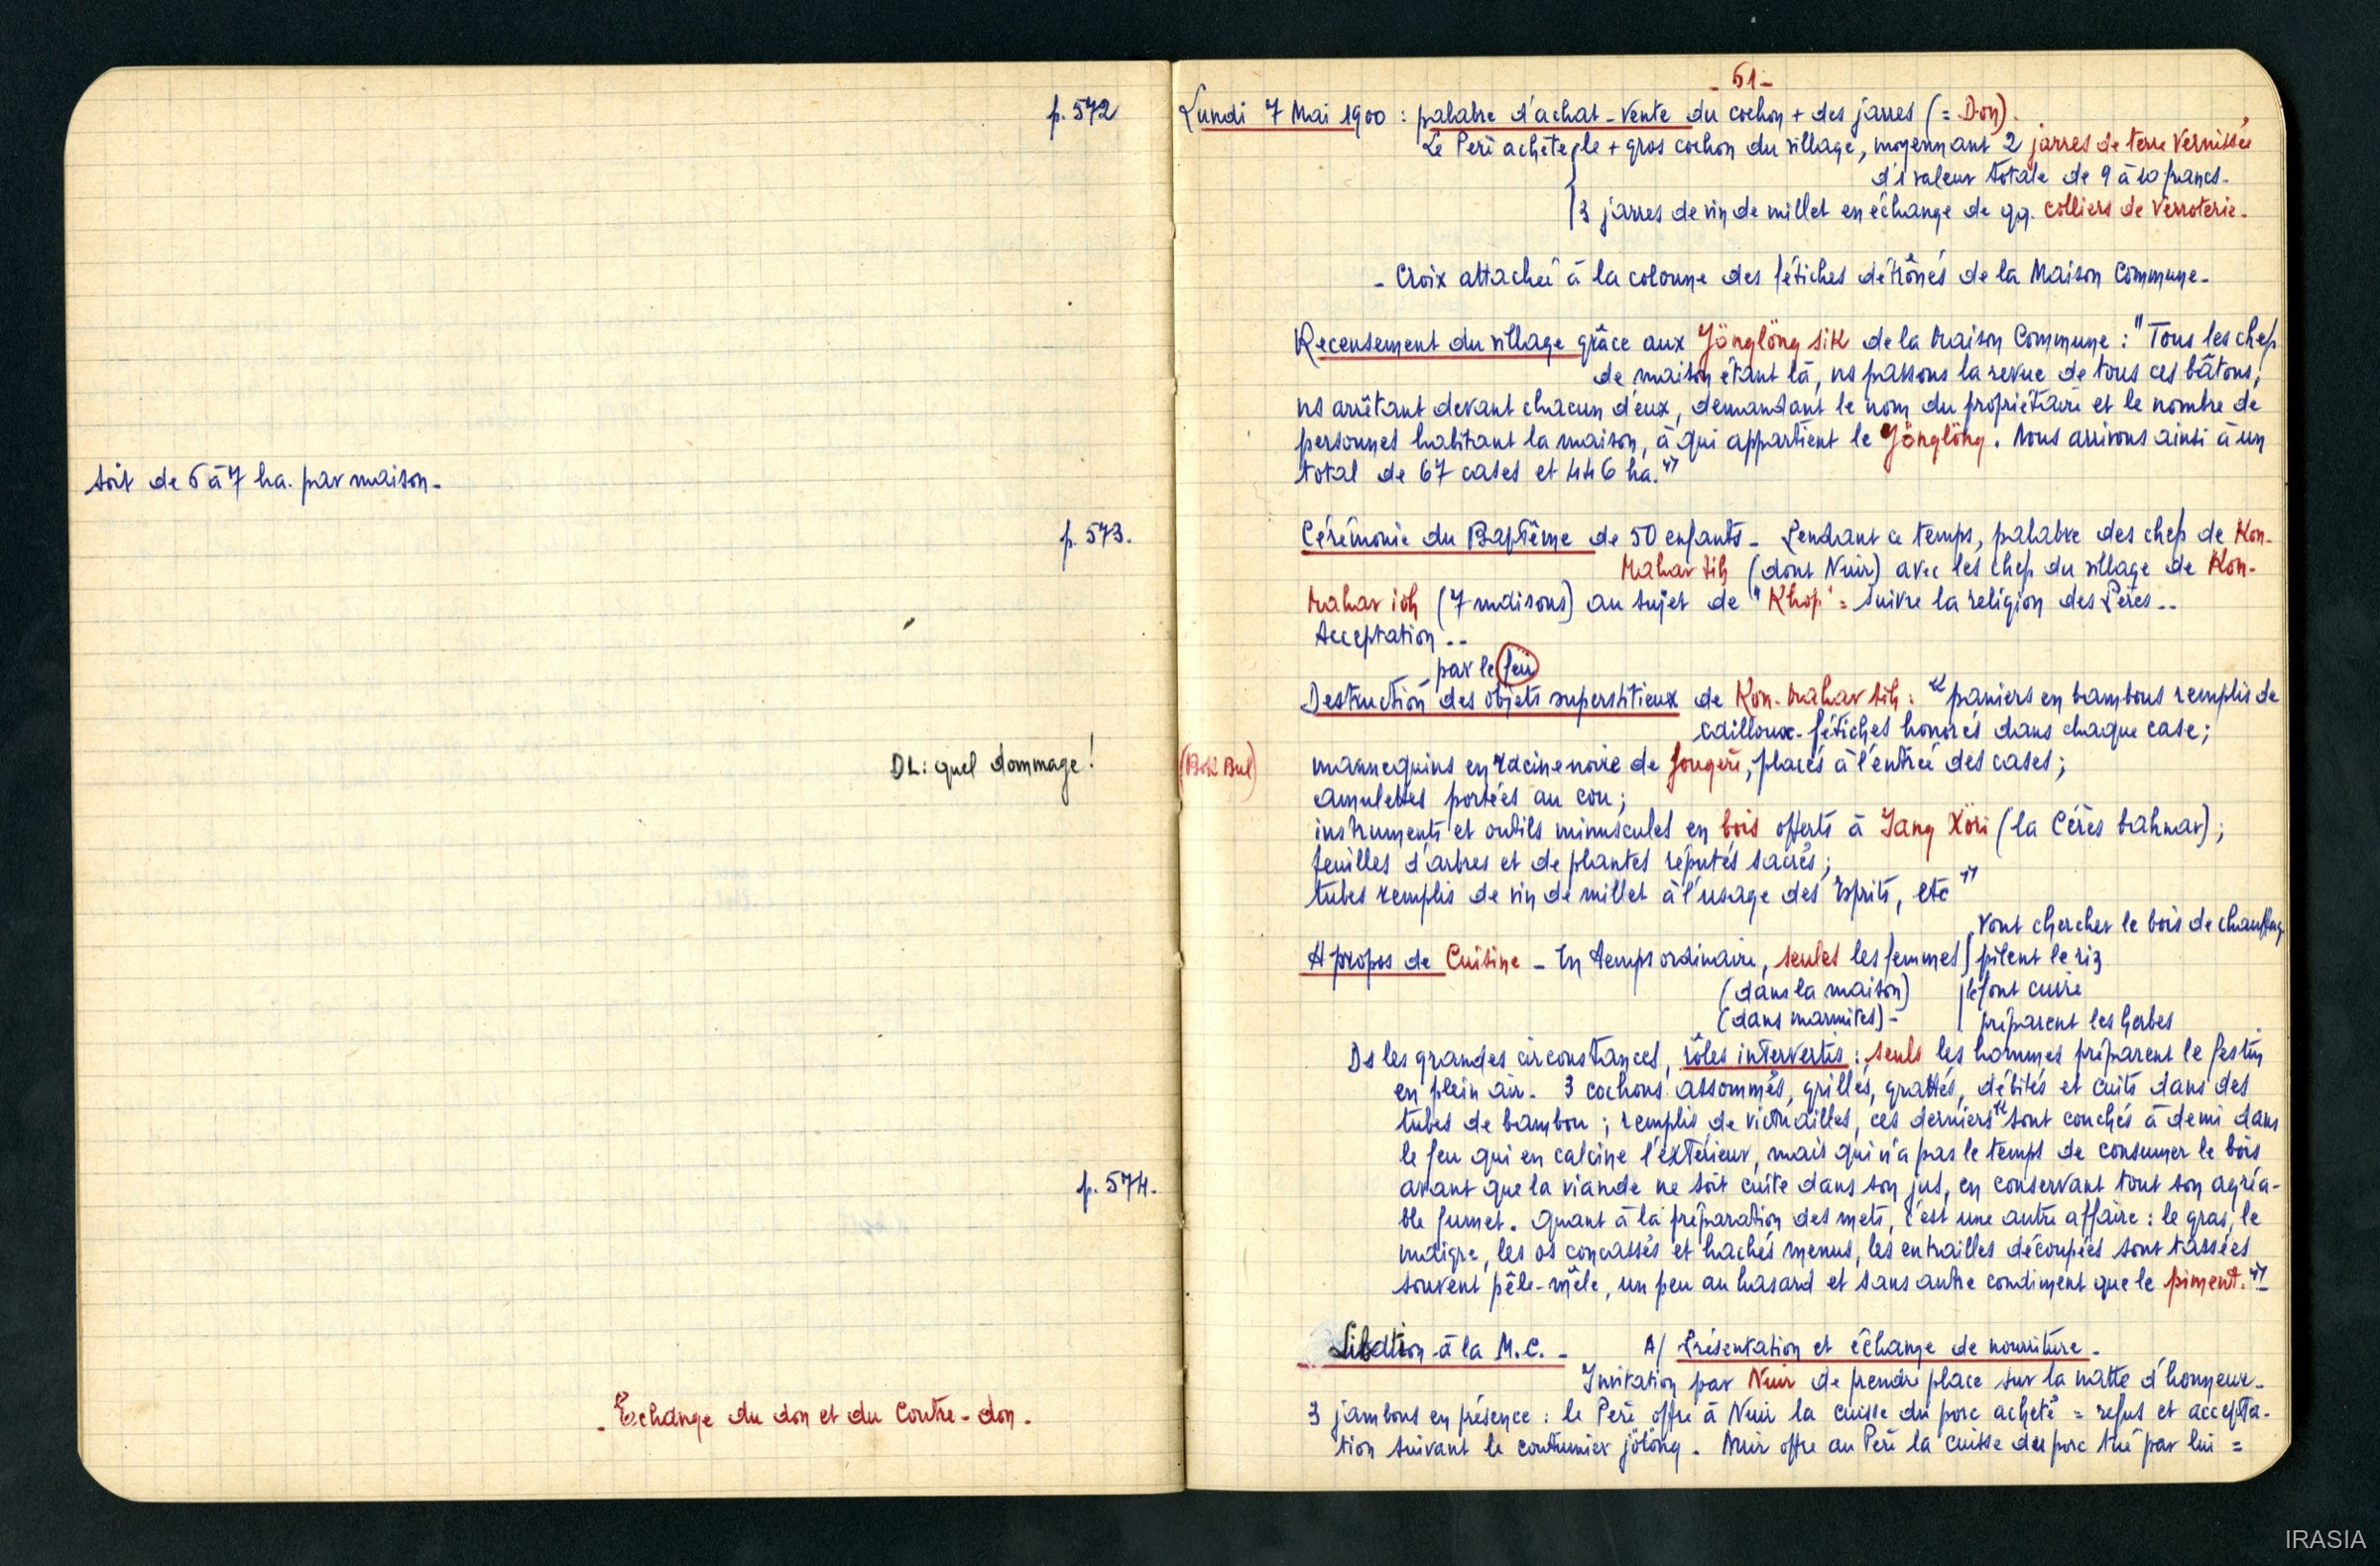 p. 572
soit de 6 à 7 ha. par maison.
p. 573.
DL: quel dommage!
p. 574.
- Echange du don et du Contre-don.
- 61 -
Lundi 7 Mai 1900 : palabre d'achat-vente du cochon + des jarres (= Don).
Le Père achète le + gros cochon du village, moyennant 2 jarres de terre vernissée
d'1 valeur totale de 9 à 10 francs.
3 jarres de vin de millet en échange de qq. colliers de verroterie.
- Croix attachée à la colonne des fétiches détrônés de la Maison Commune.
Recensement du village grâce aux Jönglöng sik de la Maison Commune : "Tous les chef
de maison étant là, ns passons la revue de tous ces bâtons,
ns arrêtant devant chacun d'eux, demandant le nom du propriétaire et le nombre de
personnes habitant la maison, à qui appartient le Jönglöng. Nous arrivons ainsi à un
total de 67 cases et 446 ha."
Cérémonie du Baptême de 50 enfants - Pendant ce temps, palabre des chef de Kon-
Mahar tih (dont Nuir) avec les chef du village de Kon-
Mahar ioh (7 maisons) au sujet de "Khop" = suivre la religion des Pères..
Acceptation ..
par le feu
Destruction des objets superstitieux de Kon-Mahar tih : "paniers en bambous remplis de
cailloux-fétiches honorés dans chaque case;
(Bok Bul) mannequins en racine noire de fougère, placés à l'entrée des cases;
amulettes portées au cou;
instruments et outils minuscules en bois offerts à Iang Xöri (la Cérès bahnar);
feuilles d'arbres et de plantes réputés sacrés;
tubes remplis de vin de millet à l'usage des Esprits, etc"
vont chercher le bois de chauffage
A propos de Cuisine - En temps ordinaire, seules les femmes pilent le riz
(dans la maison) le font cuire
(dans marmites) - préparent les herbes
Ds les grandes circonstances, rôles intervertis : seuls les hommes préparent le festin
en plein air. 3 cochons assommés, grillés, grattés, débités et cuits dans des
tubes de bambou ; remplis de victuailles, ces derniers "sont couchés à demi dans
le feu qui en calcine l'extérieur, mais qui n'a pas le temps de consumer le bois
avant que la viande ne soit cuite dans son jus, en conservant tout son agréa-
ble fumet. Quant à la préparation des mets, c'est une autre affaire : le gras, le
maigre, les os concassés et hachés menus, les entrailles découpées sont tassées
souvent pêle-mêle, un peu au hasard et sans autre condiment que le piment."
Libation à la M.C. - A/ Présentation et échange de nourriture.
Invitation par Nuir de prendre place sur la natte d'honneur.
3 jambons en présence : le Père offre à Nuir la cuisse du porc acheté = refus et accepta-
tion suivant le coutumier jölöng. Nuir offre au Père la cuisse du porc tué par lui =
IRASIA